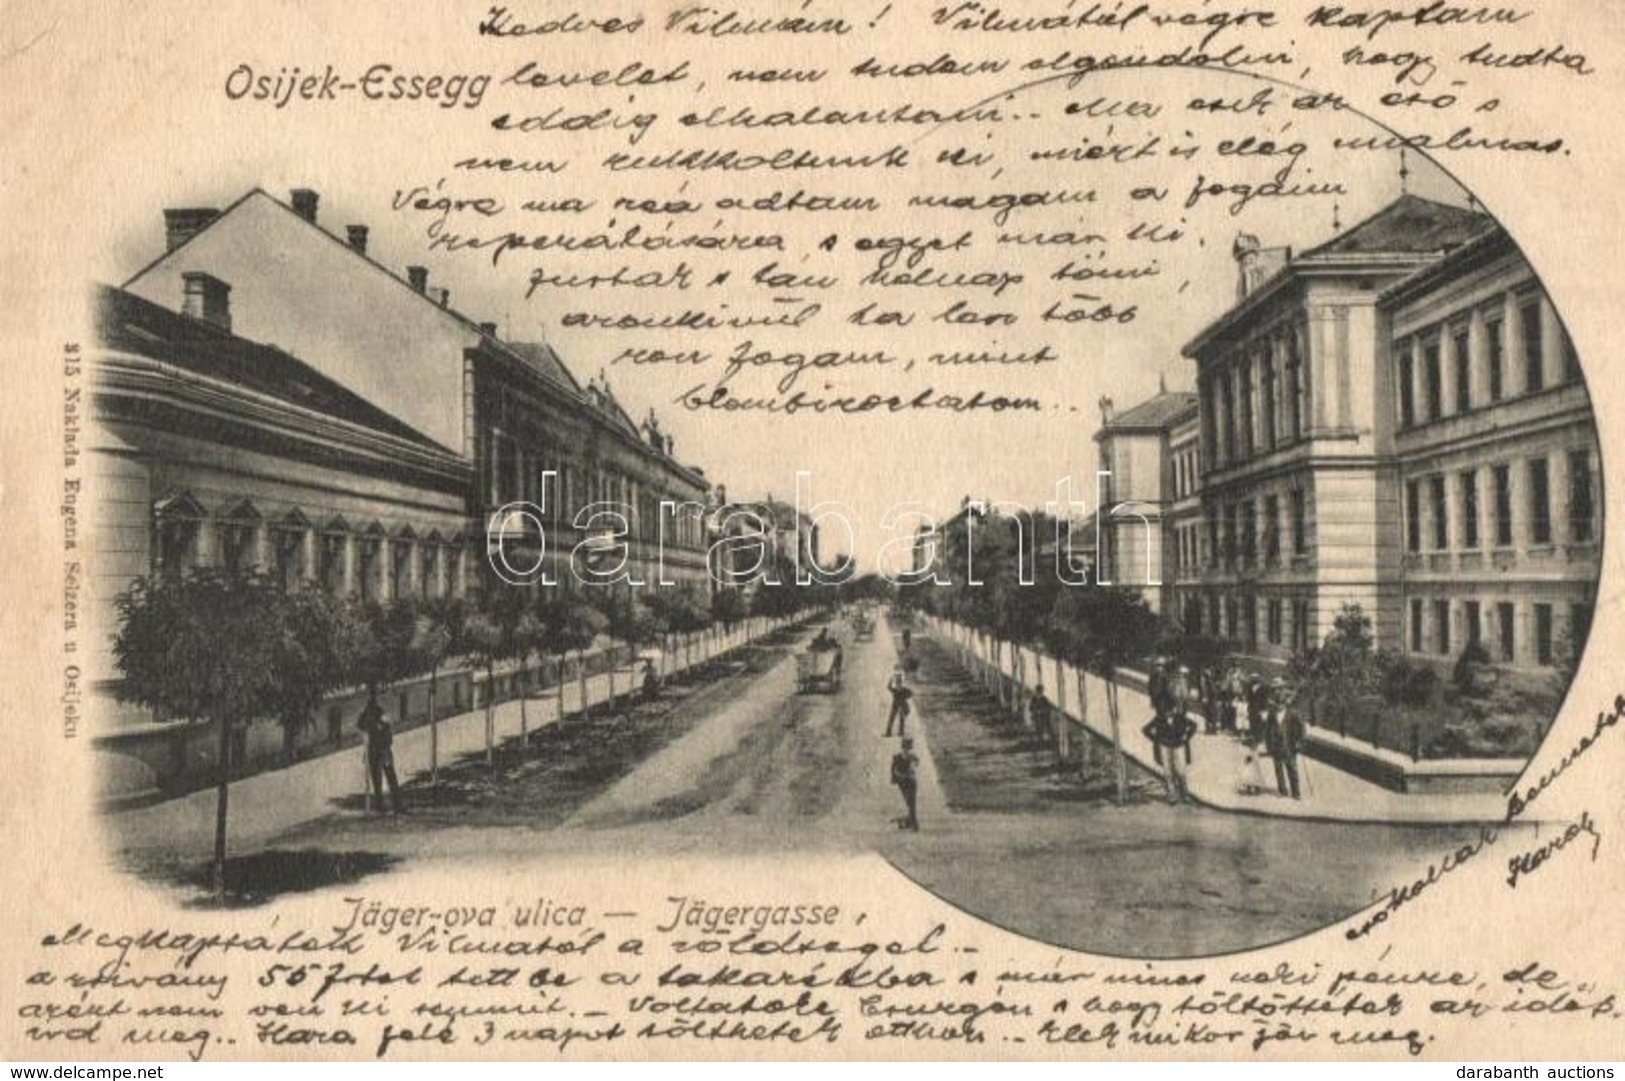 Kedves Vilmám! Vilmától végre kaptam
Osijek-Essegg
levelet, nem tudom elgondolni, hogy tudta
eddig elhalasztani.. Ma csak az eső s
nem rukkoltunk ki, miért is elég unalmas.
Végre ma reá adtam magam a fogaim
reperálására s egyet már ki
s tán holnap tömi,
azonkívül ha lesz több
fogam, mint
blombirozhatom..
315 Naklada Eugena Selzera u Osijeku
Jäger-ova ulica — Jägergasse
csókolják
Hárdy
Megkapták Vilmától a zöldséget.-
a szivány 55 frtot tett be a takarékba s már nincs neki pénze, de
azért nem vesz ki semmit.- Voltatok s hogy töltöttétek az időt.
ird meg.. Haza felé 3 napot tölthetek otthon.. mikor jön meg.
darabanth
darabanth auctions